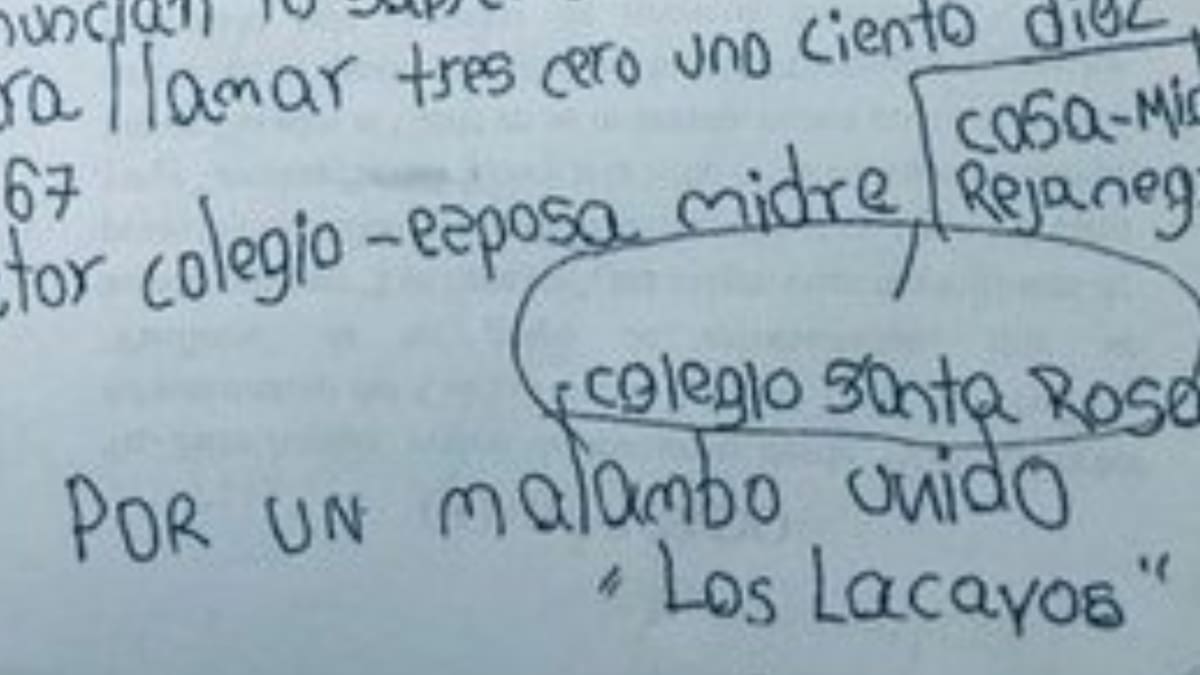 ra llamar tres cero uno ciento diez
67
tor colegio-ezposa midre
casa-Mis
Rejaneg
colegio santa Rosa
POR UN malambo unido
"Los Lacayos"